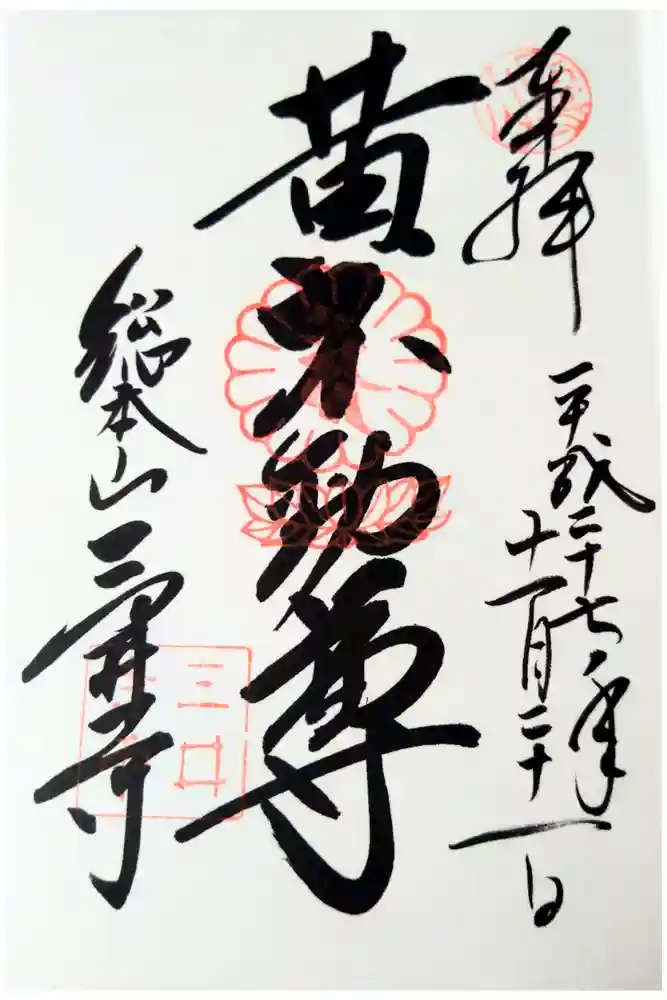 奉拝
平成二十七年
十一月二十一日
黄不動尊
総本山三井寺
三井